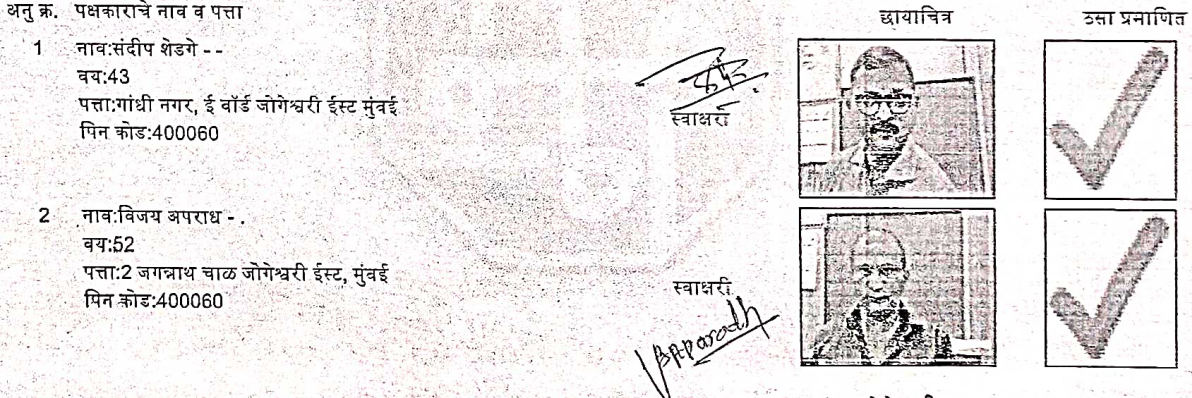 अनु क्र. पक्षकाराचे नाव व पत्ता छायाचित्र ठसा प्रमाणित
1 नाव:संदीप शेडगे - -
वय:43
पत्ता:गांधी नगर, ई वॉर्ड जोगेश्वरी ईस्ट मुंबई
पिन कोड:400060
स्वाक्षरी
2 नाव:विजय अपराध - .
वय:52
पत्ता:2 जगन्नाथ चाळ जोगेश्वरी ईस्ट, मुंबई
पिन कोड:400060
स्वाक्षरी